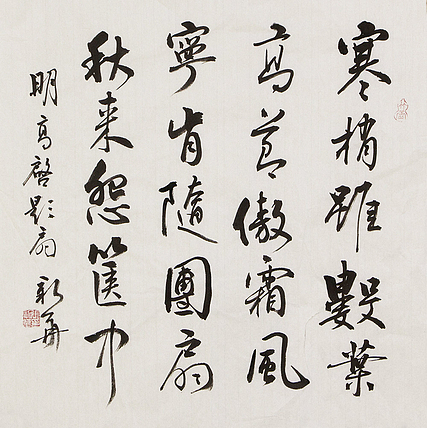 寒梢雖數葉
高節傲霜風
寧肯隨團扇
秋来怨篋中
明高啓影扇